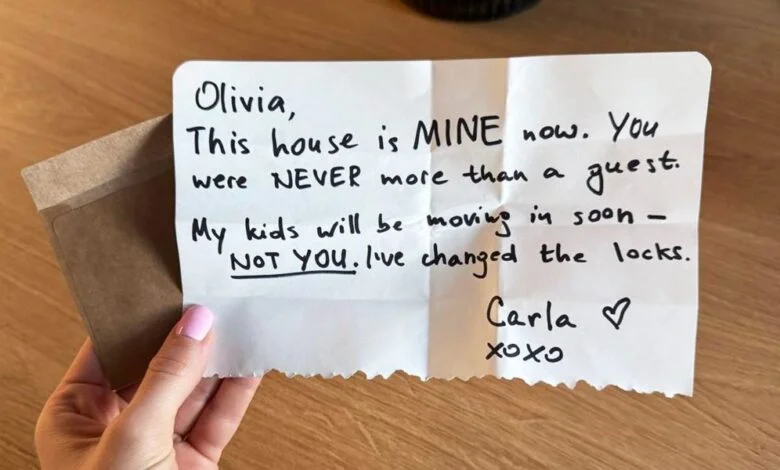 Olivia,
This house is MINE now. You
were NEVER more than a guest.
My kids will be moving in soon –
NOT YOU. I've changed the locks.
Carla ♡
xoxo